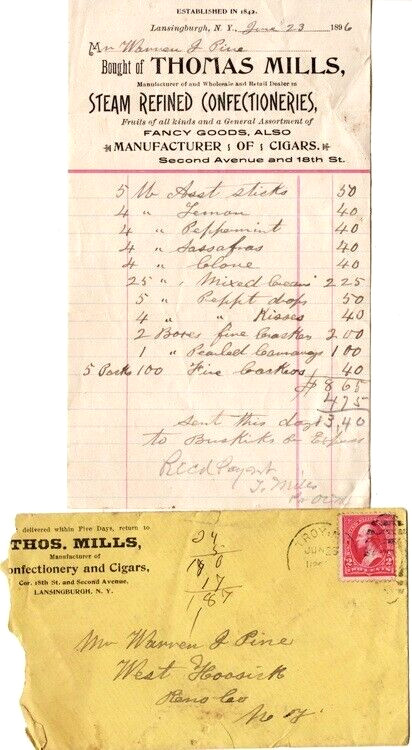 ESTABLISHED IN 1842.
Lansingburgh, N. Y., June 23 1896
Mr Warren J Pine
Bought of THOMAS MILLS,
Manufacturer of and Wholesale and Retail Dealer in
STEAM REFINED CONFECTIONERIES,
Fruits of all kinds and a General Assortment of
FANCY GOODS, ALSO
MANUFACTURER OF CIGARS.
Second Avenue and 18th St.
5 lb Asst sticks 50
4 " Lemon 40
4 " Peppermint 40
4 " Sassafras 40
4 " Clove 40
25 " Mixed Cream 2 25
5 " Peppt drops 50
4 " " Kisses 40
2 Boxes fine Crackers 2 00
1 " Pearled 1 00
5 Pack 100 Fire 40
$8 65
4 75
13,40
sent this day
to Buskirks Express
Recd Payment
T. Mills
delivered within Five Days, return to
THOS. MILLS,
Manufacturer of
onfectionery and Cigars,
Cor. 18th St. and Second Avenue,
LANSINGBURGH, N. Y.
TROY
JUN 23
2 2
TWO CENTS
17
187
Mr Warren J Pine
West Hoosick
Rens Co
N. Y.